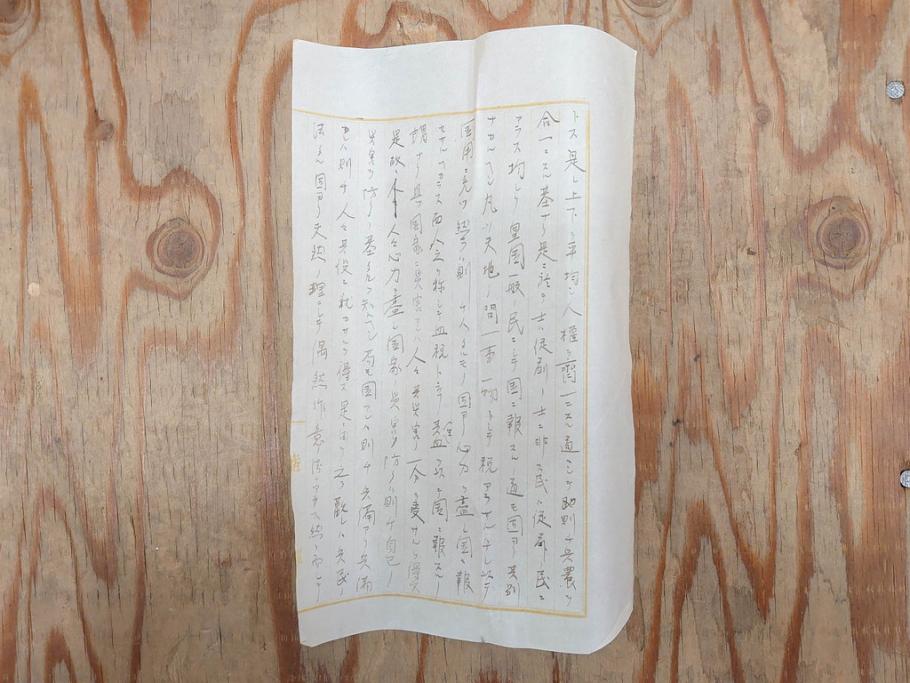 トス是レ上下ヲ平均シ人権ヲ齊一ニスル道ニシテ則チ兵農ヲ
合一ニスル基ナリ是ニ於テ士ハ従前ノ士ニ非ス民ハ従前ノ民ニ
アラス均シク皇国一般ノ民ニシテ国ニ報スルノ道モ固ヨリ其別
ナカルヘシ凡ソ天地ノ間一事一物トシテ税アラサルハナシ以テ
国用ニ充ツ然ラハ則チ人タルモノ固ヨリ心力ヲ盡シ国ニ報
セサルヘカラス西人之ヲ称シテ血税ト云フ其生血ヲ以テ国ニ報スルノ
謂ナリ且ツ国家ニ災害アレハ人々其災害ノ一分ヲ受サルヲ得ス
是故ニ人々心力ヲ盡シ国家ノ災害ヲ防クハ則チ自己ノ
災害ヲ防クノ基タルヲ知ルヘシ苟モ国アレハ則チ兵備アリ兵備
アレハ則チ人々其役ニ就カサルヲ得ス是ニ由テ之ヲ觀レハ兵民ノ
法タル固ヨリ天然ノ理ニシテ偶然作意ノ法ニアラス然リ而シテ